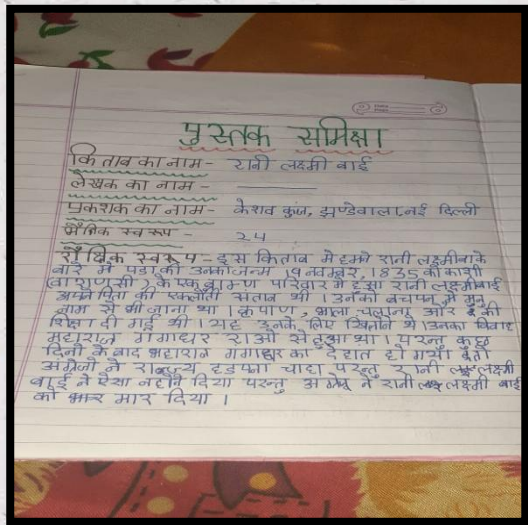 पुस्तक समिक्षा
किताब का नाम - रानी लक्ष्मी बाई
लेखक का नाम -
प्रकशक का नाम - केशव कुंज, झण्डेवाला, नई दिल्ली
स्वरूप - २४
शैक्षिक स्वरूप - इस किताब मे हमने रानी लक्ष्मीबाके
बारे मे पडा की उनका जन्म 19 नवम्बर, 1835 को काशी
(वाराणसी) के एक ब्राम्णण परिवार मे हुआ रानी लक्ष्मीबाई
अपने पिता की एकलौती संताब थी। उनको बचपन मे मनु
नाम से भी जाना था। कृपाण, भाला चलाना और की
शिक्षा दी गई थी। यह उनके लिए खिलौने थे। उनका विवाह
महाराज गंगाधर राओ से हुआ था। परन्तु कुछ
दिनो के बाद महाराज गगाधर का देहात हो गया
अग्रेजो ने राज्य हडपना चाहा परन्तु रानी लक्ष्मी
बाई ने ऐसा नही होने दिया परन्तु अग्रेज ने रानी लक्ष्मी बाई
को मार दिया।